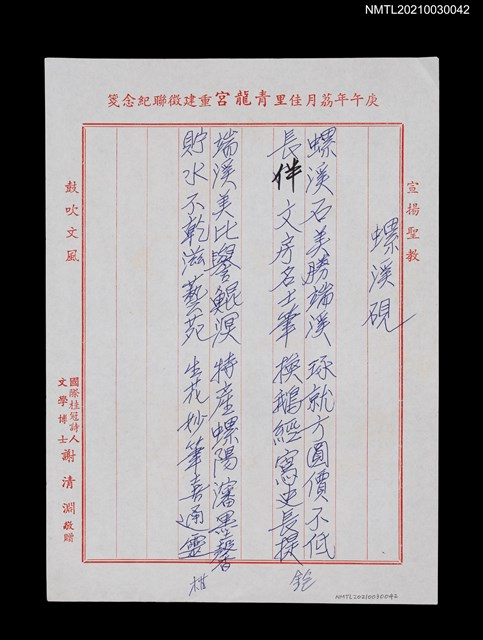 NMTL20210030042
庚午年荔月佳里青龍宮重建徵聯紀念箋
宣揚聖教
螺溪硯
螺溪石美勝端溪 琢就方圓價不低
長伴文房名士筆 換鵝經寫史長提
鉈
端溪美比譽鯤溟 特產螺陽瀋墨馨
貯水不乾滋藝苑 生花妙筆喜通靈
柑
鼓吹文風
國際桂冠詩人
文學博士
謝清淵敬贈
NMTL20210030042